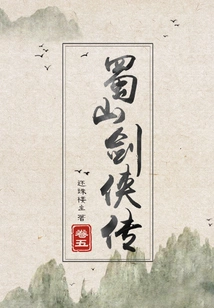 蜀山剑侠传
还珠楼主 著
卷五